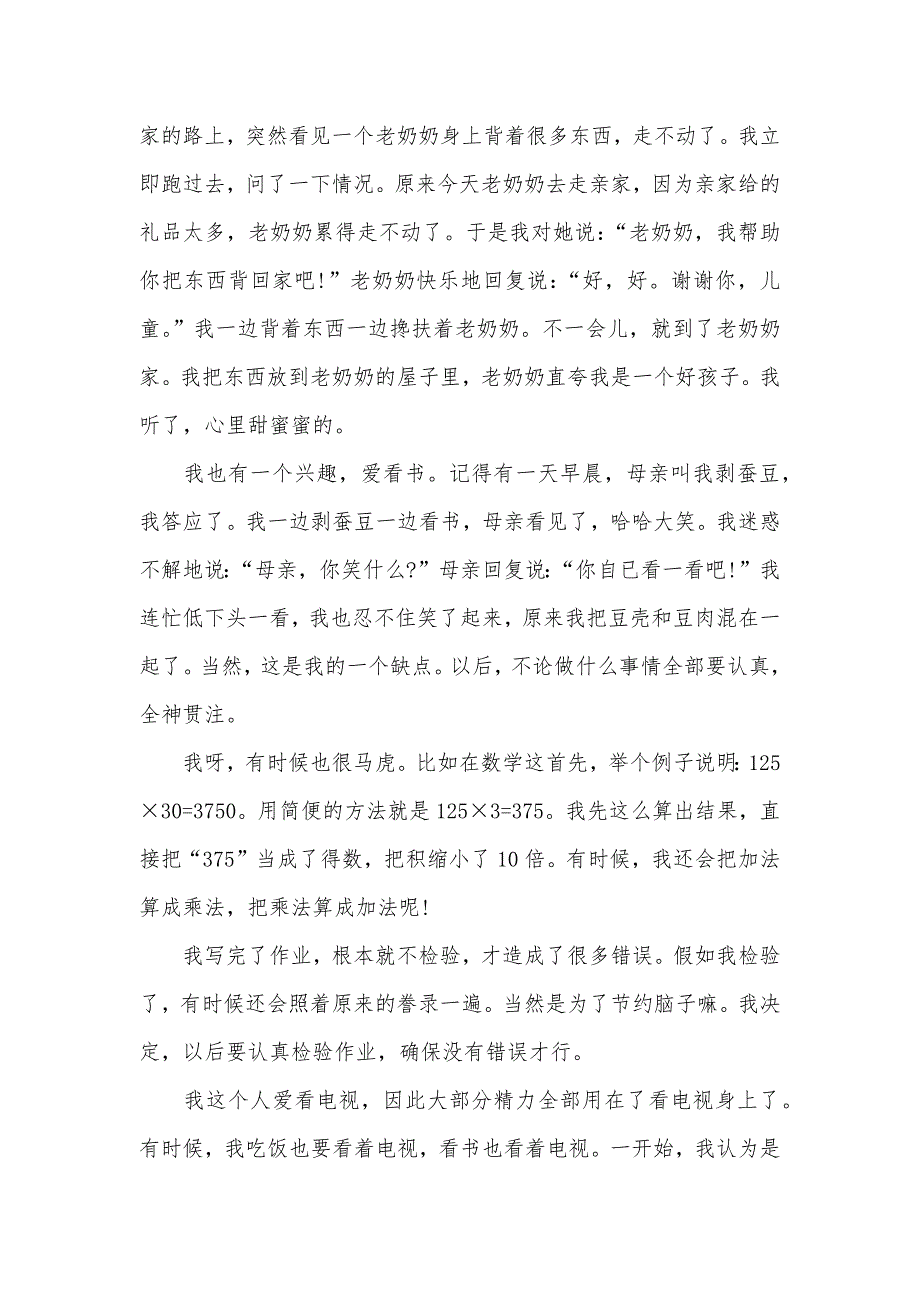 家的路上，突然看见一个老奶奶身上背着很多东西，走不动了。我立
即跑过去，问了一下情况。原来今天老奶奶去走亲家，因为亲家给的
礼品太多，老奶奶累得走不动了。于是我对她说：“老奶奶，我帮助
你把东西背回家吧!”老奶奶快乐地回复说：“好，好。谢谢你，儿
童。”我一边背着东西一边搀扶着老奶奶。不一会儿，就到了老奶奶
家。我把东西放到老奶奶的屋子里，老奶奶直夸我是一个好孩子。我
听了，心里甜蜜蜜的。
我也有一个兴趣，爱看书。记得有一天早晨，母亲叫我剥蚕豆，
我答应了。我一边剥蚕豆一边看书，母亲看见了，哈哈大笑。我迷惑
不解地说：“母亲，你笑什么?”母亲回复说：“你自已看一看吧!”我
连忙低下头一看，我也忍不住笑了起来，原来我把豆壳和豆肉混在一
起了。当然，这是我的一个缺点。以后，不论做什么事情全部要认真，
全神贯注。
我呀，有时候也很马虎。比如在数学这首先，举个例子说明：125
×30=3750。用简便的方法就是 125×3=375。我先这么算出结果，直
接把“375”当成了得数，把积缩小了 10 倍。有时候，我还会把加法
算成乘法，把乘法算成加法呢!
我写完了作业，根本就不检验，才造成了很多错误。假如我检验
了，有时候还会照着原来的誊录一遍。当然是为了节约脑子嘛。我决
定，以后要认真检验作业，确保没有错误才行。
我这个人爱看电视，因此大部分精力全部用在了看电视身上了。
有时候，我吃饭也要看着电视，看书也看着电视。一开始，我认为是